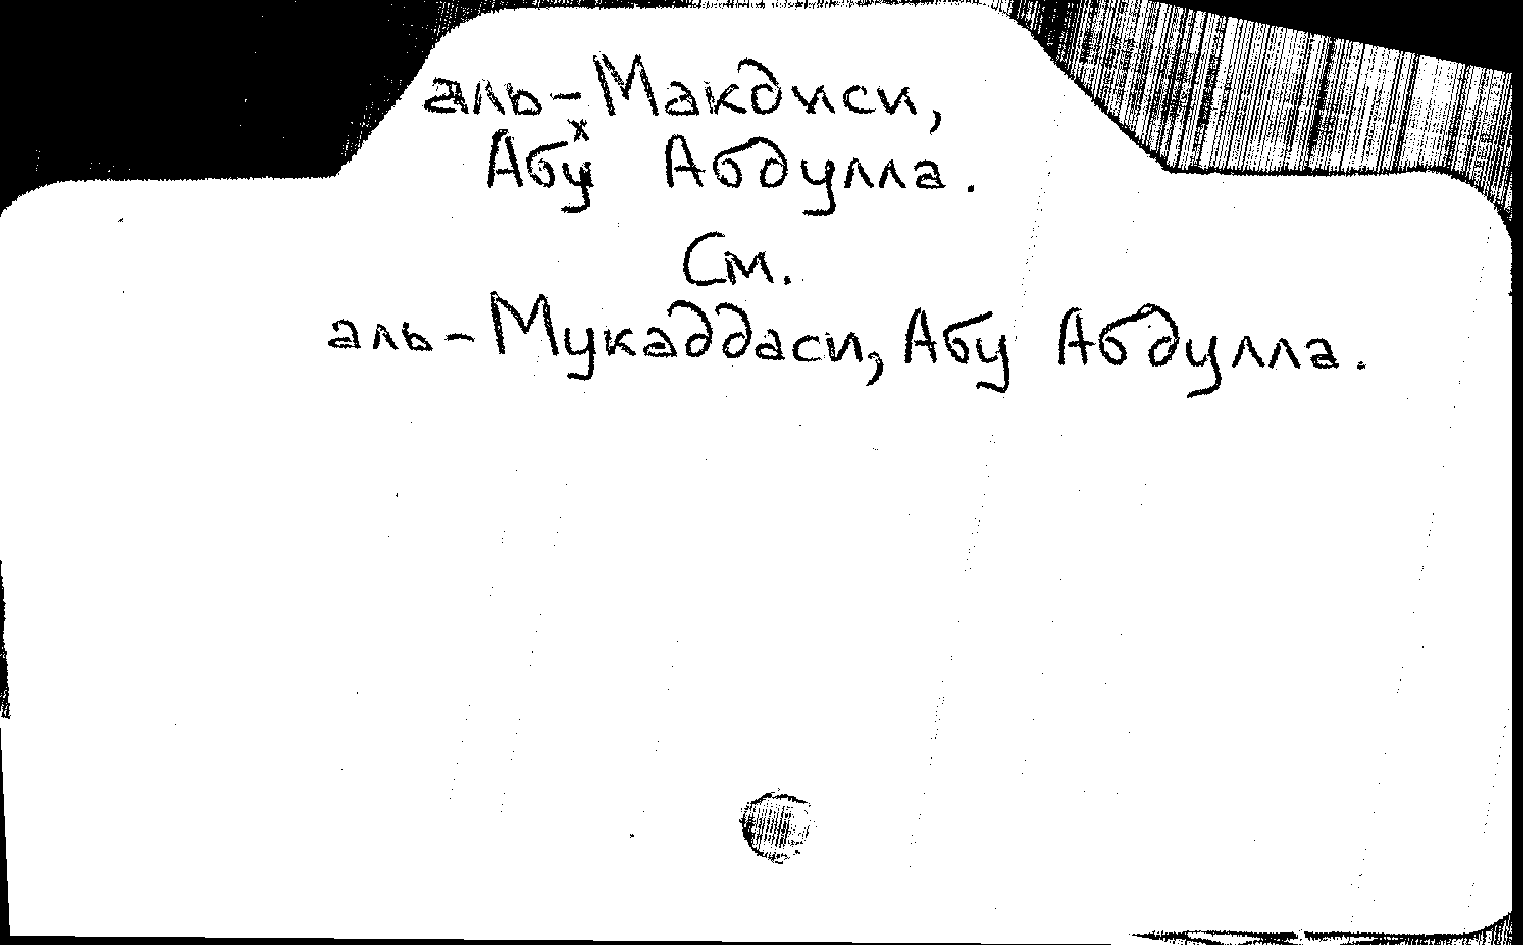 аль-Макдиси,
Абу Абдулла.
См.
аль-Мукаддаси, Абу Абдулла.